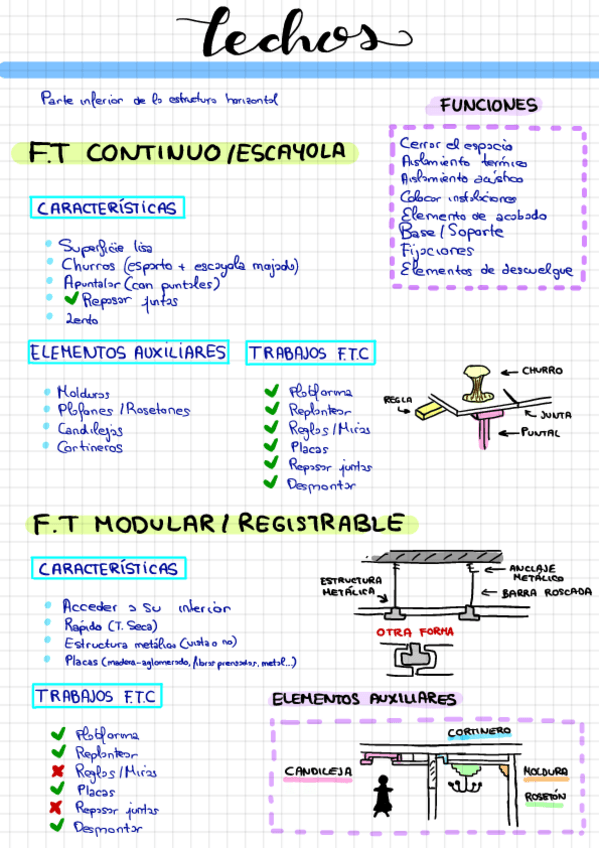 Techos
Parte inferior de la estructura horizontal
FUNCIONES
Cerrar el espacio
Aislamiento térmico
Aislamiento acústico
Colocar instalaciones
Elemento de acabado
Base/Soporte
Fijaciones
Elementos de descuelgue
F.T CONTINUO/ESCAYOLA
CARACTERÍSTICAS
Superficie lisa
Churros (esparto + escayola mojado)
Apuntalar (con puntales)
✓ Repasar juntas
Lento
ELEMENTOS AUXILIARES
Molduras
Plafones/Rosetones
Candilejas
Cortineros
TRABAJOS F.T.C
✓ Plataforma
✓ Replantear
✓ Reglas/Miras
✓ Placas
✓ Repasar juntas
✓ Desmontar
CHURRO
REGLA
JUNTA
PUNTAL
F.T MODULAR/REGISTRABLE
CARACTERÍSTICAS
Acceder a su interior
Rápido (T. Seca)
Estructura metálica (vista o no)
Placas (madera-aglomerado, fibras prensadas, metal...)
ESTRUCTURA
METÁLICA
ANCLAJE
METÁLICO
BARRA ROSCADA
OTRA FORMA
TRABAJOS F.T.C
✓ Plataforma
✓ Replantear
✗ Reglas/Miras
✓ Placas
✗ Repasar juntas
✓ Desmontar
ELEMENTOS AUXILIARES
CORTINERO
CANDILEJA
MOLDURA
ROSETÓN